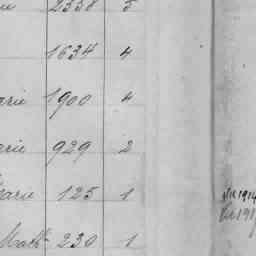 2338 5
1634 4
arie 1900 4
arie 929 2
arie 125 1
Math. 230 1